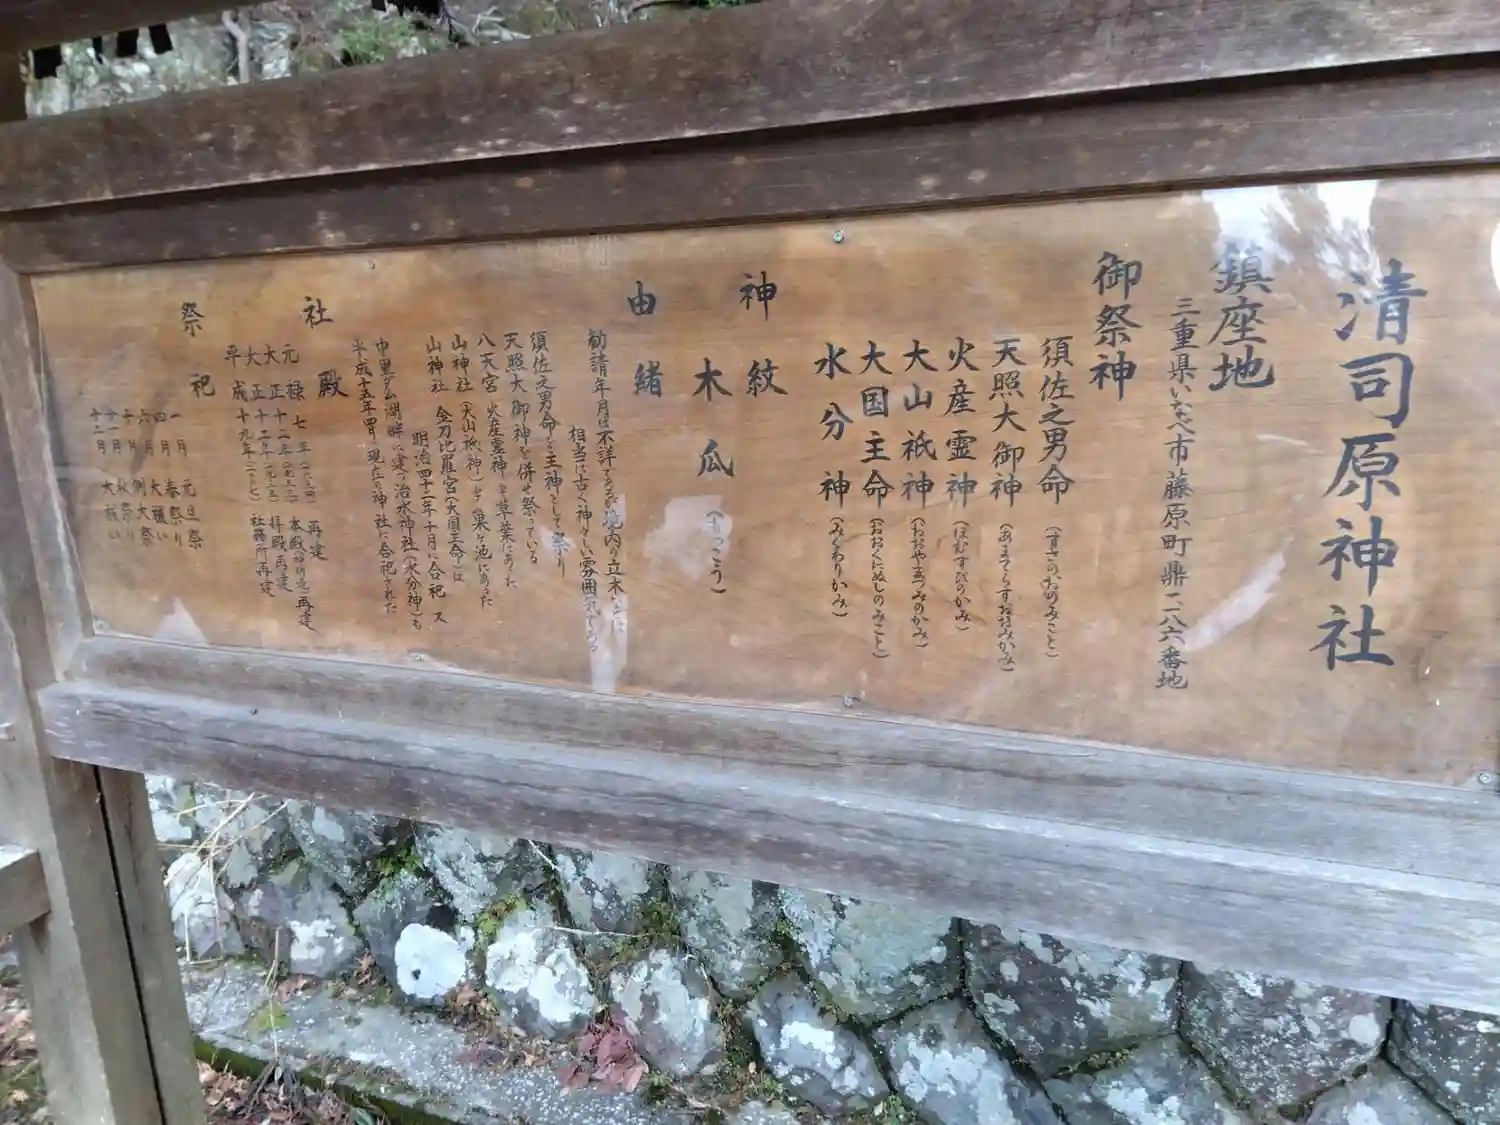 清司原神社
鎮座地
三重県いなべ市藤原町鼎二八六番地
御祭神
須佐之男命(すさのおのみこと)
天照大御神(あまてらすおおみかみ)
火産霊神(ほむすびのかみ)
大山祇神(おおやまつみのかみ)
大国主命(おおくにぬしのみこと)
水分神(みくまりかみ)
神紋
木瓜(もっこう)
由緒
勧請年月は不詳であるが境内の立木などは
相当に古く神々しい雰囲気である
須佐之男命を主神として祭り
天照大御神を併せ祭っている
八天宮 火産霊神
山神社(大山祇神)
山神社 金刀比羅宮(大国主命)は
明治四十二年十月に合祀 ス
中里ダム湖畔に建つ治水神社(水分神)も
平成十五年四月現在の神社に合祀された
社殿
元禄七年 再建
大正十一年 本殿 再建
大正十二年 拝殿再建
平成十九年 社務所再建
祭祀
一月 元旦祭
四月 春祭り
六月 大祓い
十月 例大祭
十一月 秋祭り
十二月 大祓い